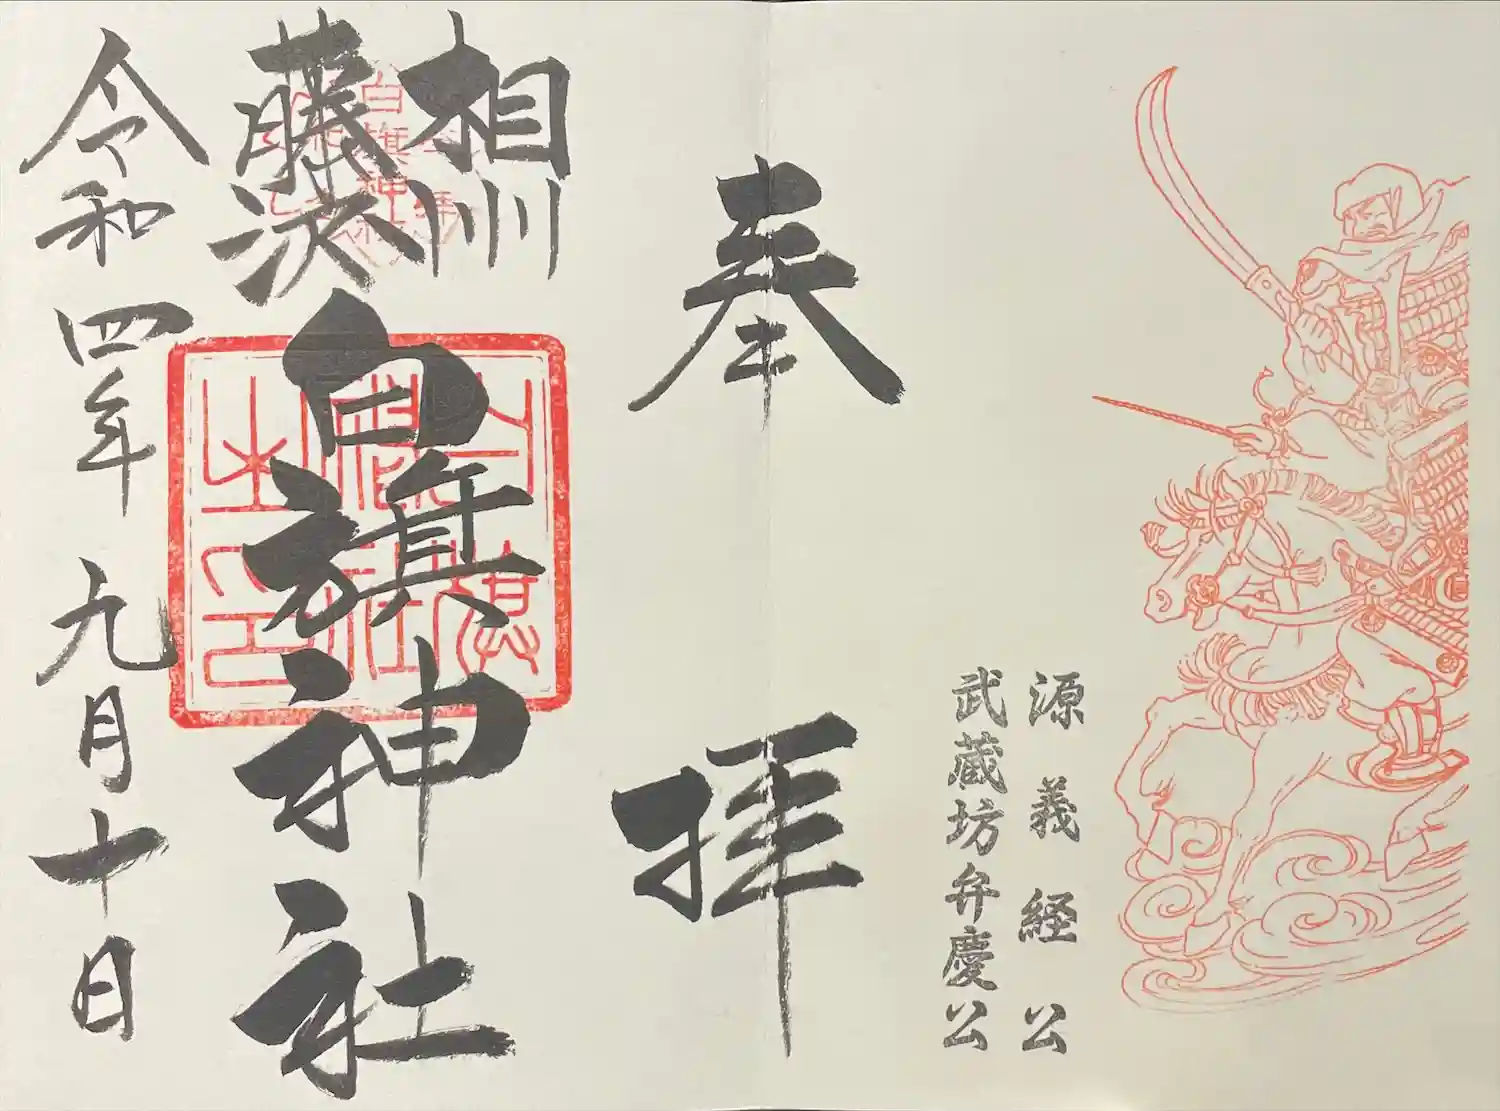 源義経公
武蔵坊弁慶公
奉拝
相州
藤沢
白旗神社
令和四年九月十日
白旗神社